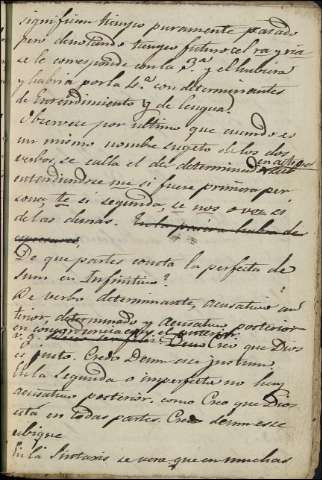 significan tiempo puramente pasado
pero denotando tiempo futuro ce ra y ria
se le corresponde con la 3.ª y el hubiera
y habria por la 4.ª con determinantes
de Entendimiento y de lengua.
Observese por ultimo que cuando es
un mismo nombre sugeto de los dos
verbos, se calla el del determinado
entendiendose me si fuere primera per
sona te si segunda, se nos o vos si
de las demas.
De que partes consta la perfecta de
Sum en Infinitivo?
De verbo determinante, acusativo an
terior, determinado y Acusativo posterior
en concurrencia con el anterior
v. g. Creo que Dios
es justo. Credo Deum esse justum.
En la segunda o imperfecta no hay
acusativo posterior. como Creo que Dios
esta en todas partes. Credo deum esse
ubique
En la Sintaxis se vera que en muchas